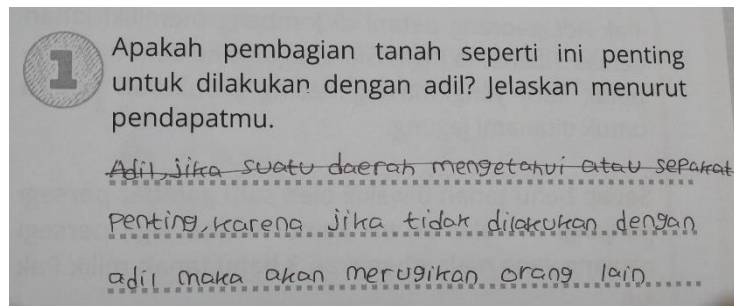 1
Apakah pembagian tanah seperti ini penting
untuk dilakukan dengan adil? Jelaskan menurut
pendapatmu.
Adil, jika suatu daerah mengetahui atau sepakat
penting, karena jika tidak dilakukan dengan
adil maka akan merugikan orang lain